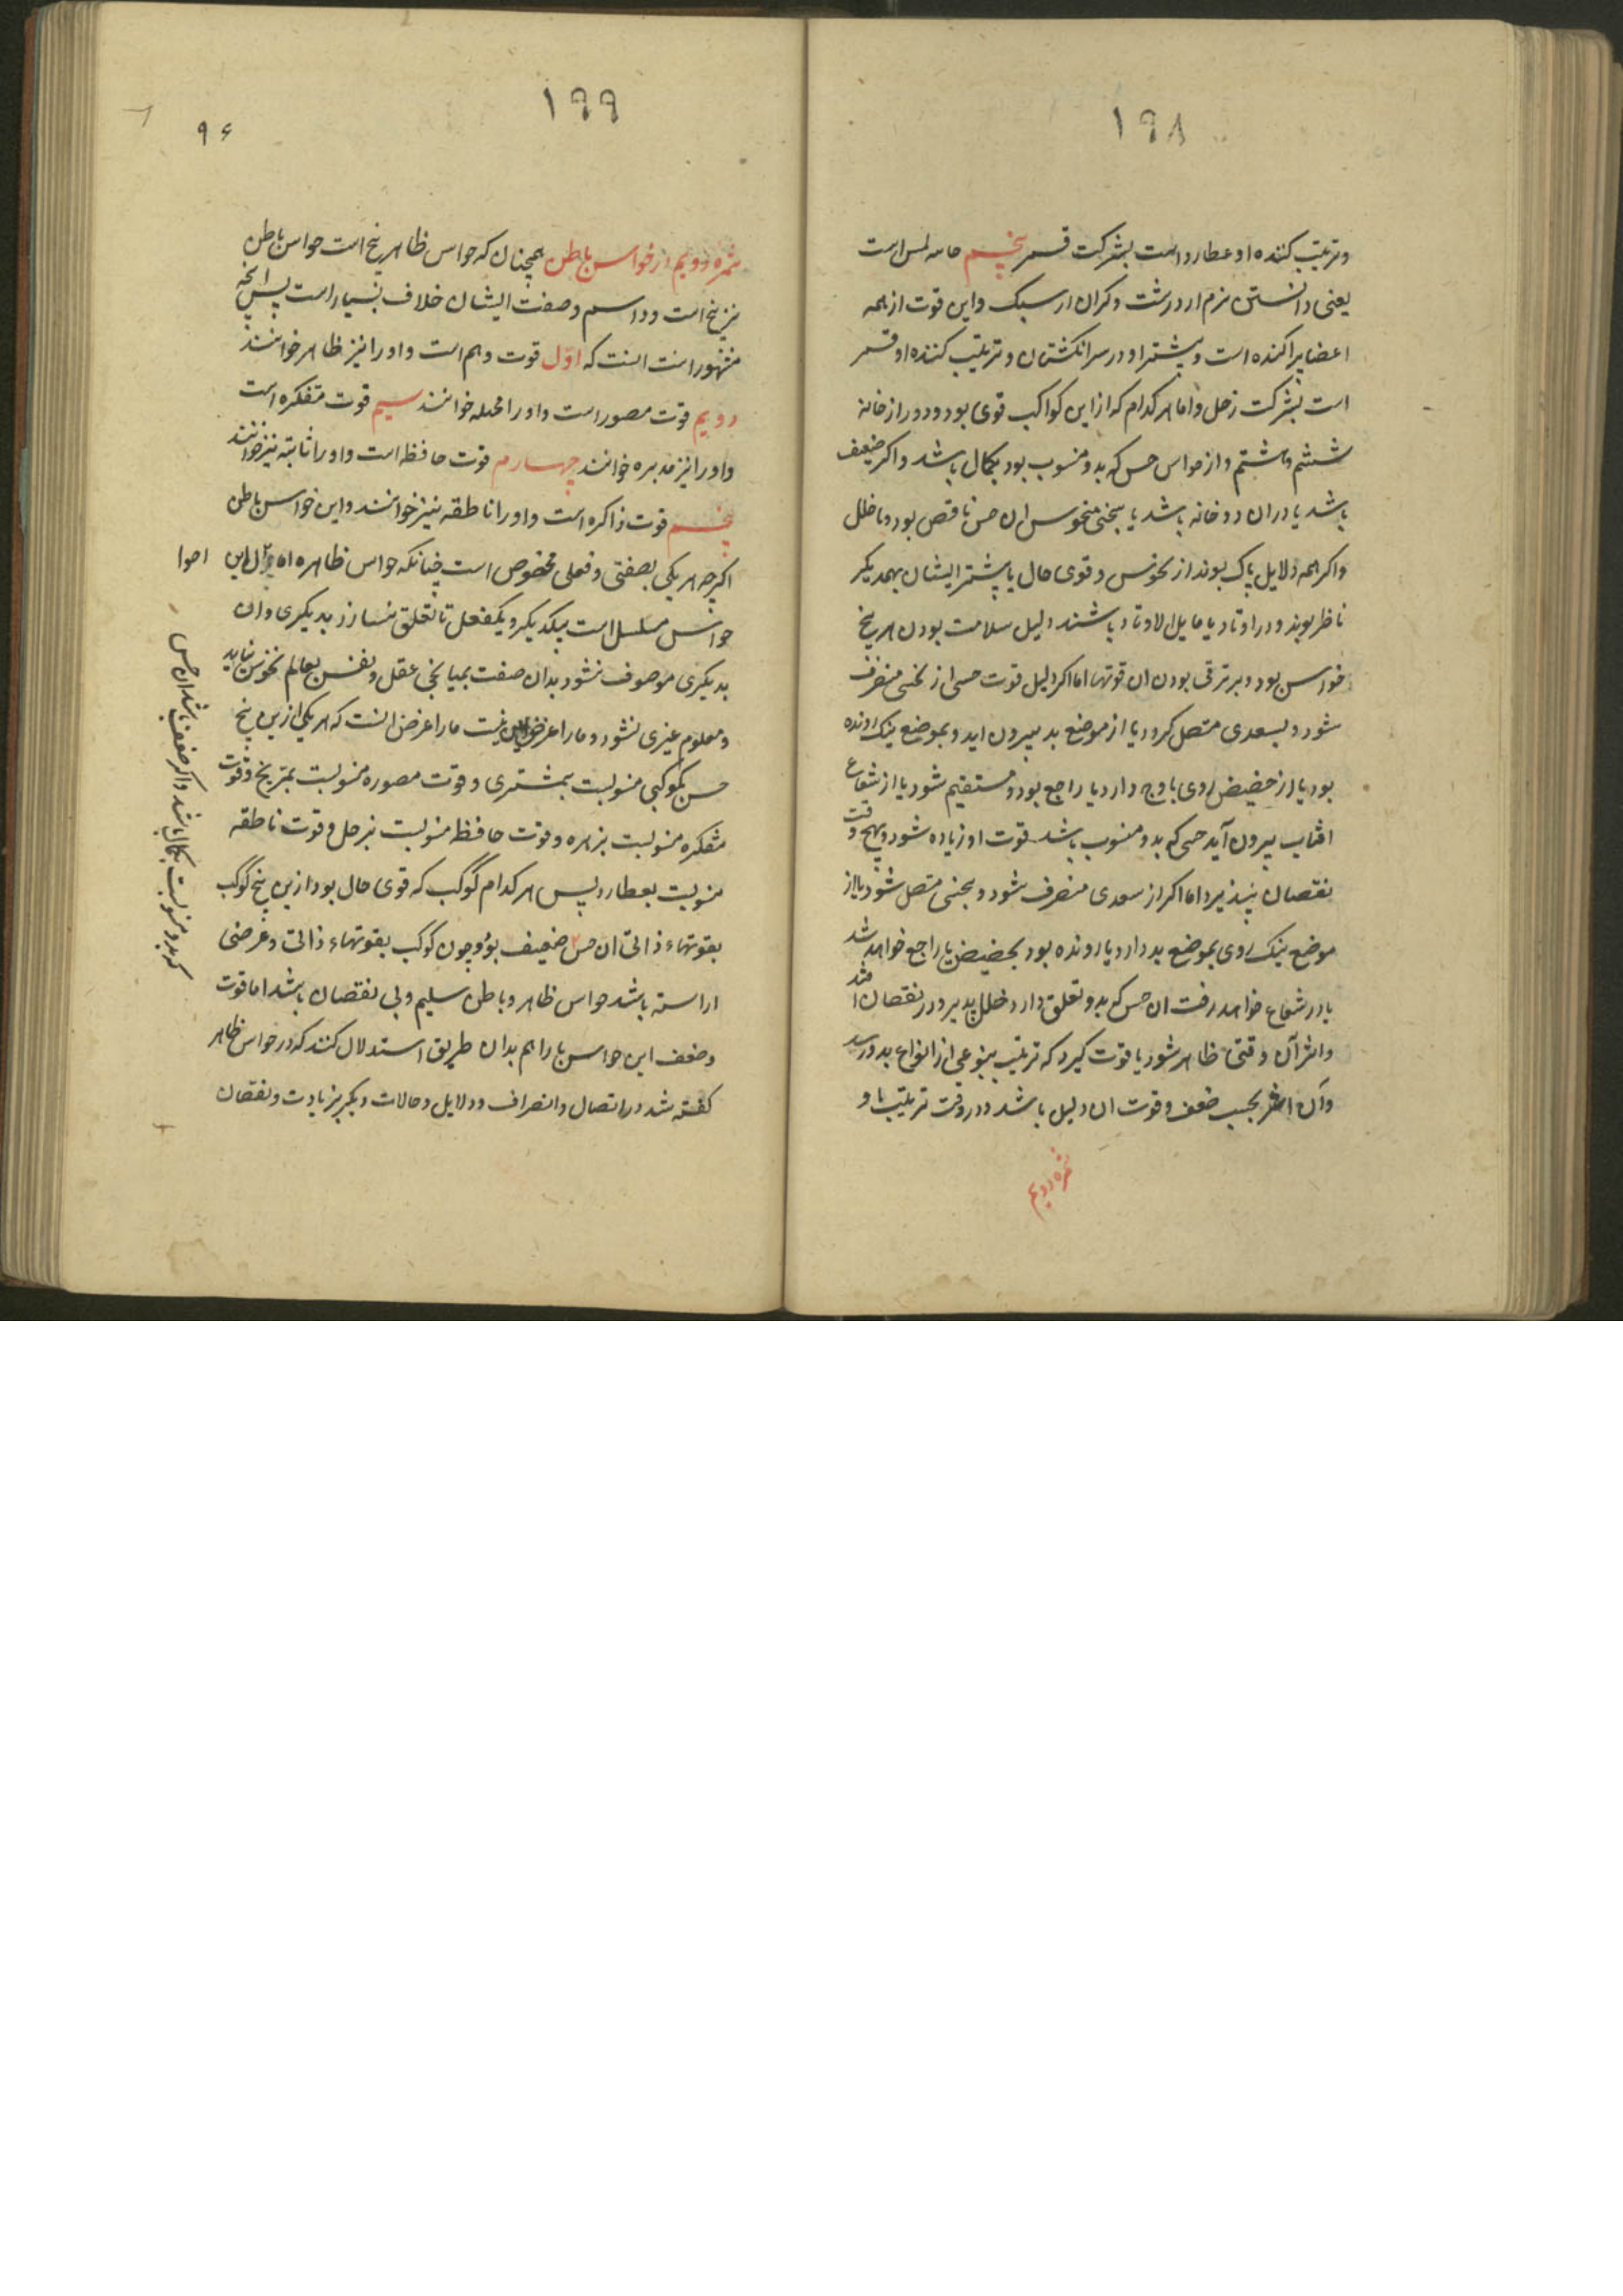 ۱۹۸
وتربیت کننده او عطارد است بشرکت قمر پنجم حاسه لمس است
یعنی دانستن نرم از درشت و کران از سبک واین قوت از همه
اعضا پراکنده است و بیشتر او در سر انکشتان و تربیت کننده او قمر
است بشرکت زحل و اما هر کدام که از این کواکب قوی بود و دور از خانه
ششم و هشتم و از حواس حس که بدو منسوب بود بکمال باشد و اکر ضعیف
باشد یا در ان دو خانه باشد یا بنحسی منحوس ان حس ناقص بود و با خلل
و اکر همه دلایل پاک بوند از نحوس و قوی حال یا بیشتر ایشان بهمدیکر
ناظر بوند و در اوتاد یا مایل الاوتاد باشند دلیل سلامت بودن هر پنج
حواس بود و بر ترقی بودن ان قوتها اما اکر دلیل قوت حسی از نحسی منصرف
شود و بسعدی متصل کردد یا از موضع بد بیرون اید و بموضع نیک رونده
بود یا از حضیض روی باوج دارد یا راجع بود و مستقیم شود یا از شعاع
افتاب بیرون آید حسی که بدو منسوب باشد قوت او زیاده شود و بهیچ وقت
نقصان نپذیرد اما اکر از سعدی منصرف شود و بنحسی متصل شود یا از
موضع نیک روی بموضع بد دارد یا رونده بود بحضیض یا راجع خواهد شد
یا در شعاع خواهد رفت ان حس که بدو تعلق دارد خلل پدیرد و در نقصان افتد
و اثر آن وقتی ظاهر شود یا قوت کیرد که تربیت بنوعی از انواع بدو رسد
و آن اثر بحسب ضعف و قوت ان دلیل باشد در وقت تربیت با و
ثمره دویم
۱۹۹
۹۶
ثمره دویم از حواس باطن همچنان که حواس ظاهر پنج است حواس باطن
نیز پنج است و در اسم و صفت ایشان خلاف بسیار است پس انچه
مشهور است انست که اوّل قوت وهم است و او را نیز ظاهر خوانند
دویم قوت مصور است و او را مخیله خوانند سیم قوت متفکره است
و او را نیز مدبره خوانند چهارم قوت حافظه است و او را ثابته نیز خوانند
پنجم قوت ذاکره است و او را ناطقه نیز خوانند و این حواس باطن
اکرچه هر یکی بصفتی و فعلی مخصوص است چنانکه حواس ظاهره اما این
احوا
حواس مسلسل است بیکدیکر و یکفعل تا تعلق نسازد بدیکری و ان
بدیکری موصوف نشود بدان صفت بمیانجی عقل و نفس بعالم نخوس نیاید
و معلوم غیری نشود و ما را غرض این نیست ما را غرض انست که هر یکی ازین پنج
حس بکوکبی منسوبست بمشتری و قوت مصوره منسوبست بمریخ و قوت
متفکره منسوبست بزهره و قوت حافظه منسوبست بزحل و قوت ناطقه
منسوبست بعطارد پس هر کدام کوکب که قوی حال بود ازین پنج کوکب
بقوتهاء ذاتی ان حس ضعیف بود و چون کوکب بقوتهاء ذاتی و عرضی
اراسته باشد حواس ظاهر و باطن سلیم و بی نقصان باشد اما قوت
و ضعف این حواس را هم بدان طریق استدلال کنند که در حواس ظاهر
کفته شد در اتصال و انصراف و دلایل و حالات دیکر بزیادت و نقصان
که بدو منسوبست بکمال باشد و اکر ضعیف باشد ان حس